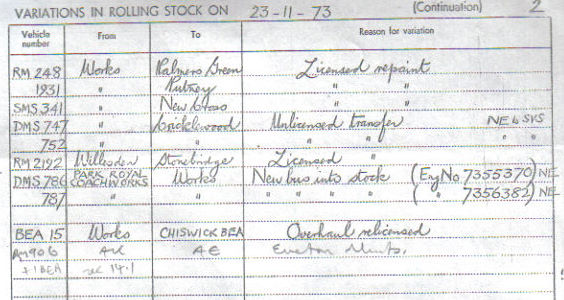 VARIATIONS IN ROLLING STOCK ON 23-11-73 (Continuation) 2
Vehicle number From To Reason for variation
RM 248 Works Palmers Green Licensed repaint
1931 " Putney " "
SMS 341 " New Cross " "
DMS 747 " Cricklewood Unlicensed transfer NE 6 SVS
752 " " " " " "
RM 2192 Willesden Stonebridge Licensed "
DMS 786 PARK ROYAL COACHWORKS Works New bus into stock (Eng No 7355370) NE
787 " " " " " " ( " 7356382) NE
BEA 15 Works CHISWICK BEA Overhaul relicensed
AK AE
+1 BEA